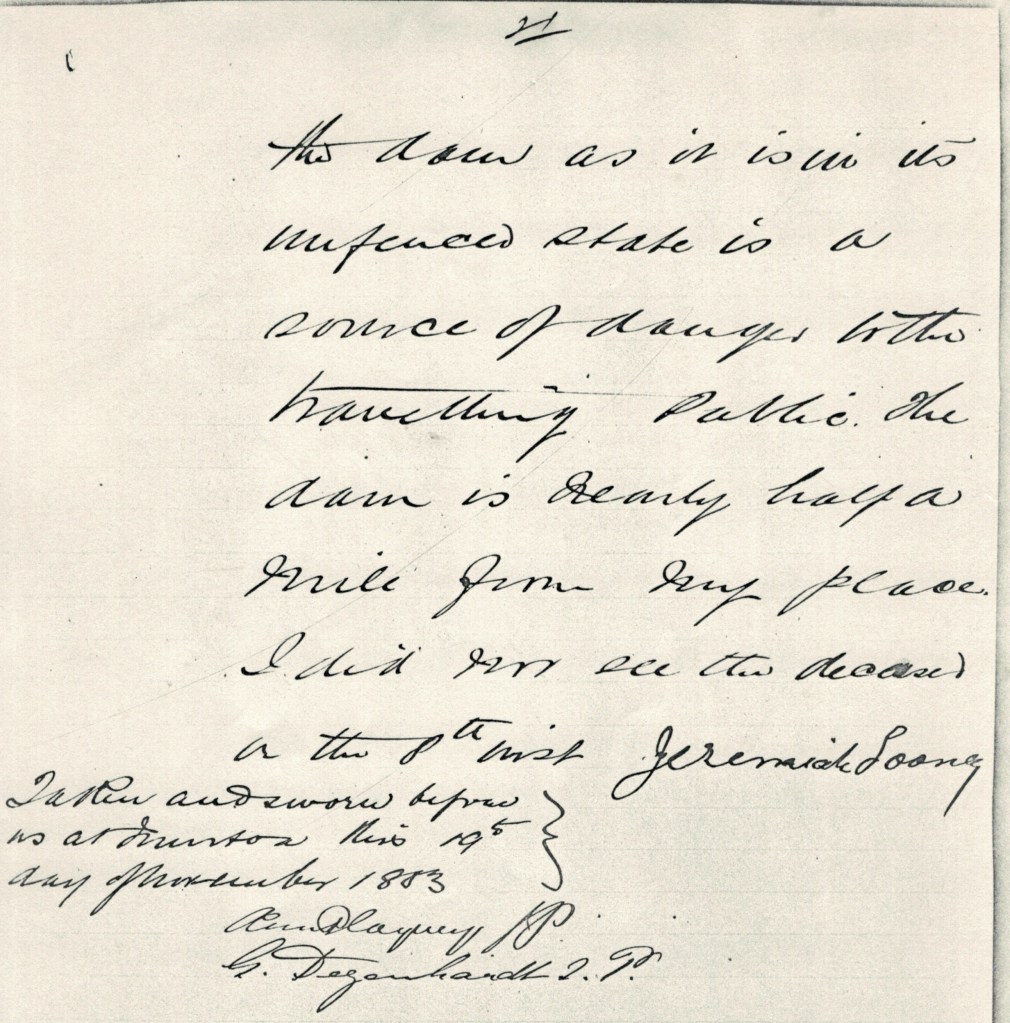 the dam as it is in its
unfenced state is a
source of danger to the
travelling Public. The
dam is nearly half a
mile from my place.
I did not see the deceased
on the 8th inst Jeremiah Looney
Taken and sworn before
us at this 19th
day of November 1883
JP
G. Degenhardt J.P.